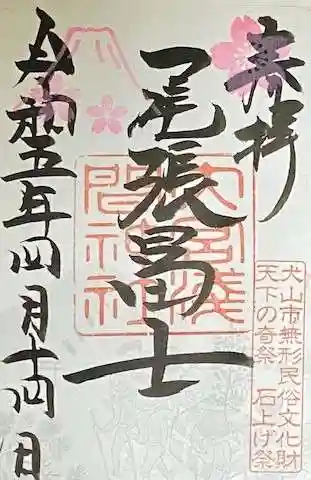 奉拝
尾張冨士
大宮浅
間神社
令和五年四月十四日
犬山市無形民俗文化財
天下の奇祭 石上げ祭